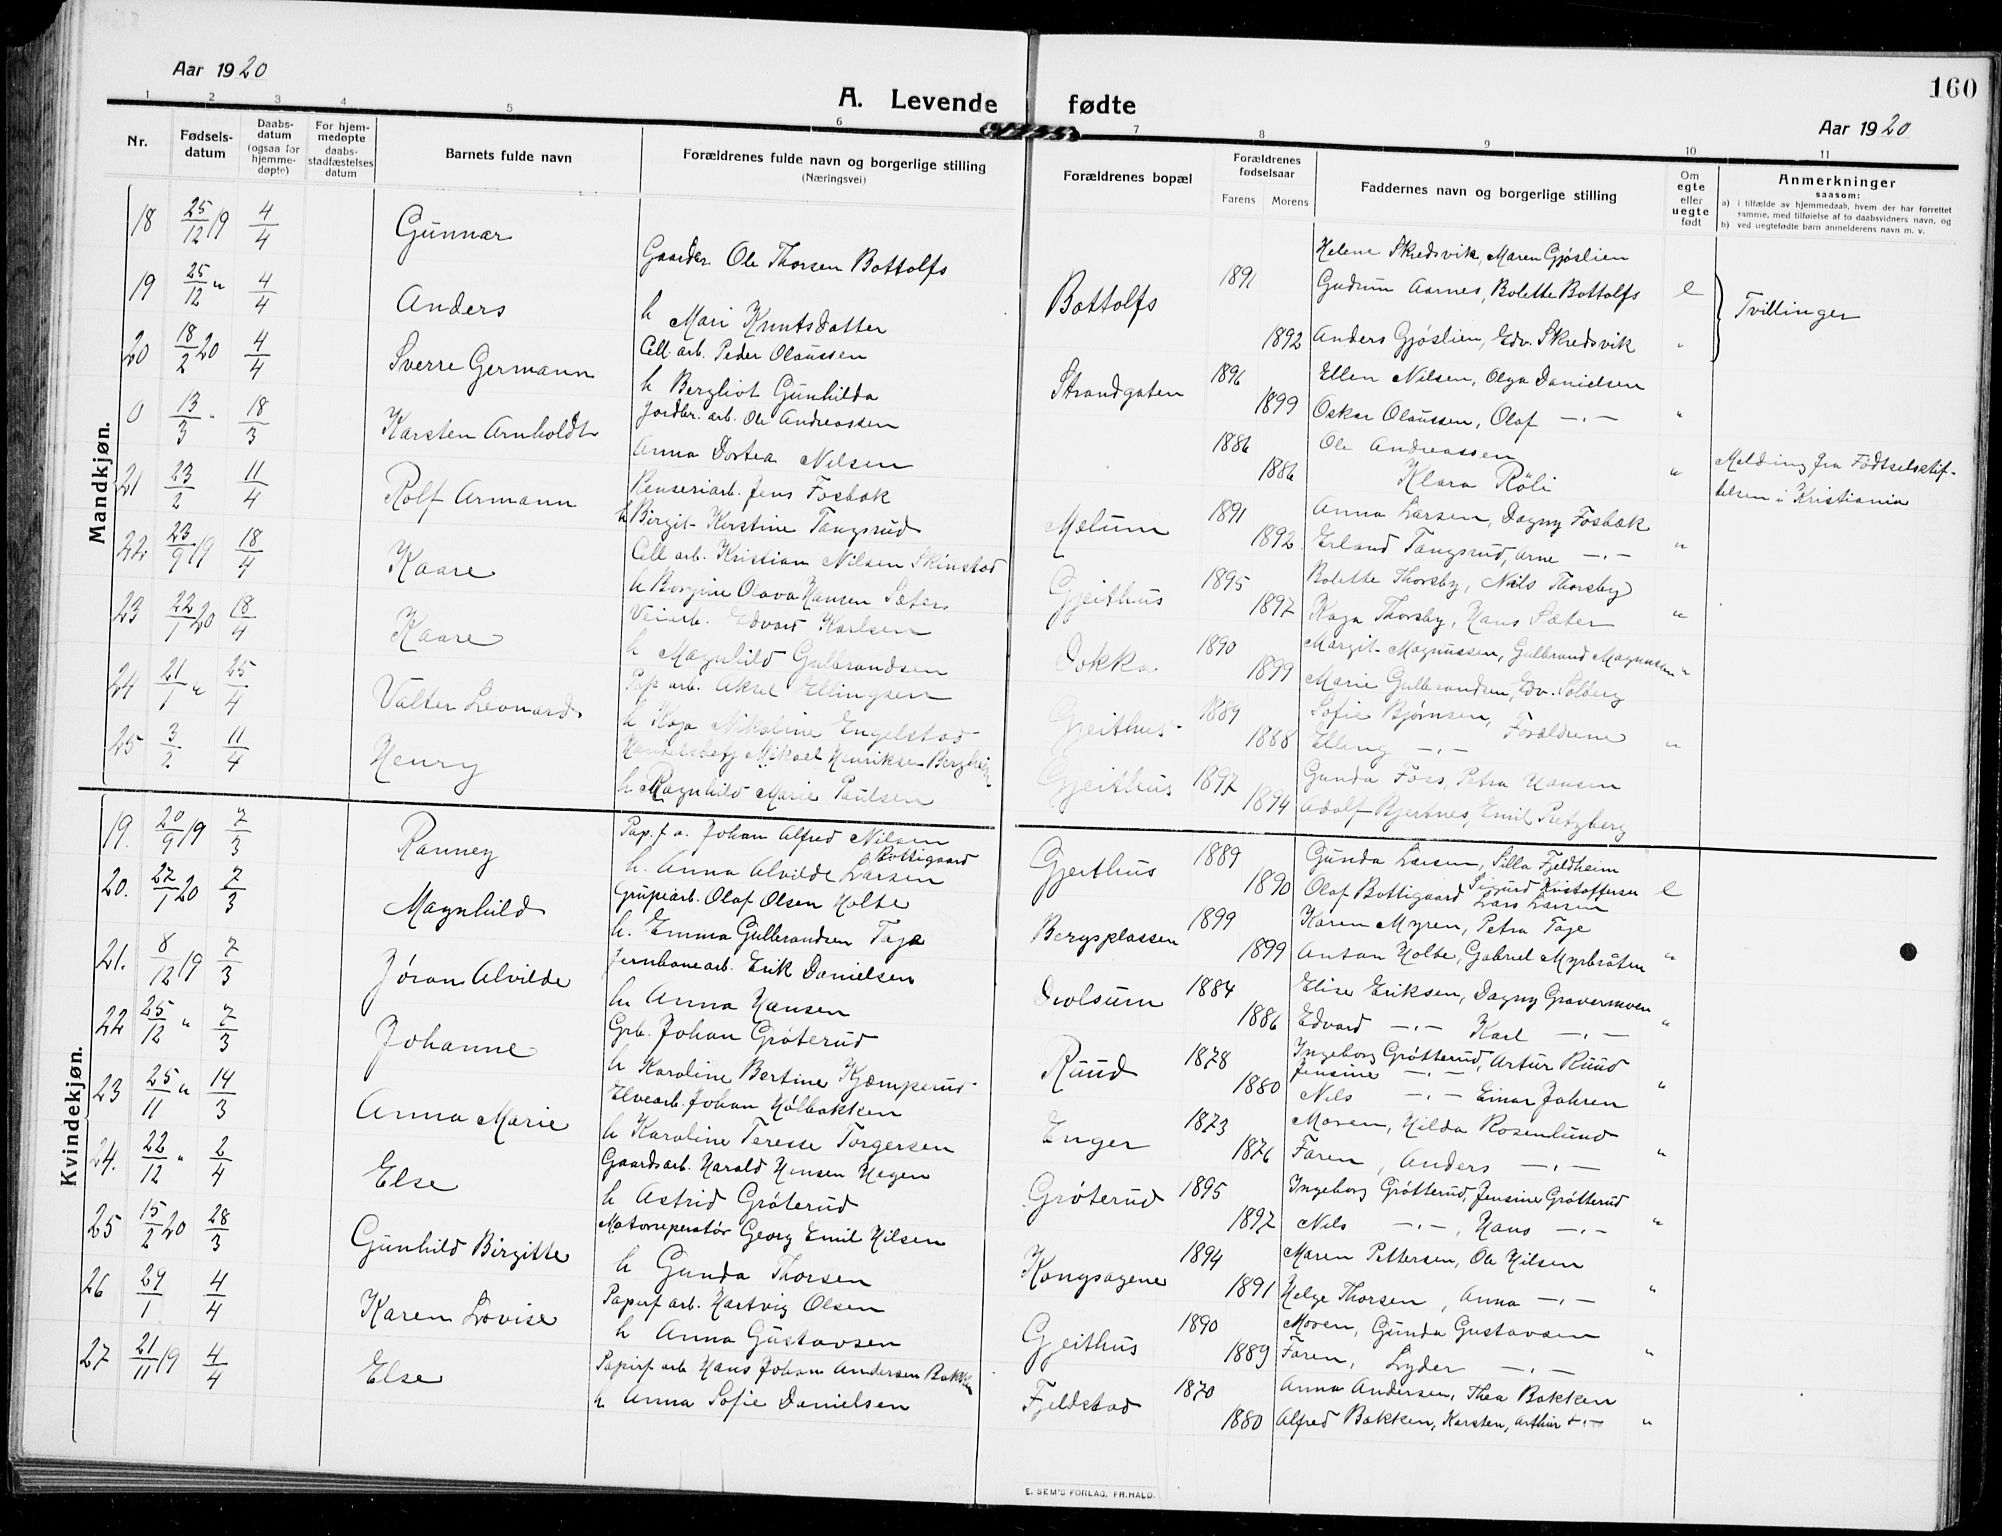 Aar 1920
A. Levende fødte
160
Aar 1920
1 2 3 4 5 6 7 8 9 10 11
Nr.
Fødsels-
datum
Daabs-
datum
(ogsaa for
hjemme-
døpte)
For hjem-
medøpte
daabs-
stadfæstelses
datum
Barnets fulde navn
Forældrenes fulde navn og borgerlige stilling
(Næringsvei)
Forældrenes bopæl
Forældrenes
fødselsaar
Farens Morens
Faddernes navn og borgerlige stilling
Om
egte
eller
uegte
født
Anmerkninger
saasom:
a) i tilfælde av hjemmedaab, hvem der har forrettet
samme, med tilføielse af to daabsvidners navn, og
b) ved uegtefødte barn anmelderens navn m. v.
Mandkjøn.
18 25/12 19 4/4 Gunnar
Gaardbr. Ole Thorsen Bottolfs
Helene Skredsvik, Maren Gjøslien
19 25/12 " 4/4 Anders
h Mari Knutsdatter
Bottolfs 1891 Gudrun Aarnes, Bolette Bottolfs e
1892 Anders Gjøslien, Edv. Skredsvik "
Tvillinger
20 18/2 20 4/4 Sverre Germann
Cell. arb. Peder Olaussen
h Bergliot Gunhilda
Strandgaten 1896 Ellen Nilsen, Olga Danielsen
1899 Oskar Olaussen, Olaf -"- "
0 13/3 " 18/3 Karsten Arnholdt
Jordbr. arb. Ole Andreassen
Anna Dortea Nilsen
1886 Ole Andreassen
1886 Klara Røli "
Melding fra Fødselsstif-
telsen i Kristiania
21 23/2 11/4 Rolf Armann
Renseriarb. Jens Fosbak
h Birgit Kerstine Tangsrud
Mælum 1891 Anna Larsen, Dagny Fosbæk
1892 Erland Tangsrud, Arne -"- "
22 23/9 19 18/4 Kaare
Cell arb. Kristian Nilsen Skinstad
h Borgine Olava Hansen Sæter
Gjeithus 1895 Bolette Thorsby, Nils Thorsby
1897 Kaga Thorsby, Hans Sæter "
23 22/1 20 18/4 Kaare
Veiarb. Edvard Karlsen
h Magnhild Gulbrandsen
Dokka 1890 Margit Magnussen, Gulbrand Magnussen "
1899 Marie Gulbrandsen, Edv. Solberg
24 21/1 " 25/4 Valter Leonard
Pap arb. Aksel Ellingsen
h Kaja Nikoline Engelstad
Gjeithus 1889 Sofie Bjørnsen, Forældrene
1888 Elling -"- "
25 3/2 11/4 Henry
Handelsbetj Mikael Henriksen Bergheim
h Ragnhild Marie Paulsen
Gjeithus 1897 Gunda Foss, Petra Hansen
1894 Adolf Bjertnes, Emil Pretzberg
Kvindekjøn.
19. 20/9 19 7/3 Ranney
Pap. f a. Johan Alfred Nilsen
Bottigaard
h. Anna Alvilde Larsen
Gjeithus 1889 Gunda Larsen, Silla Fjeldheim
1890 Olaf Bottigaard Sigurd Kristoffersen Lars Larsen e
20. 27/1 20 7/3 Magnhild
Grupearb. Olaf Olsen Holte
h. Emma Gulbrandsen Tage
Bergsplassen 1899 Karen Myren, Petra Tage
1899 Anton Holte, Gabriel Myrbråten "
21. 8/12 19 7/3 Jøran Alvilde
Jernbanearb. Erik Danielsen
h Anna Hansen
Drolsum 1884 Elise Eriksen, Dagny Gravermoen
1886 Edvard -"- Karl -"- "
22 25/12 " 7/3 Johanne
Grb. Johan Grøterud
h Karoline Bertine Kjæmperud
Ruud 1878 Ingeborg Grøtterud, Artur Ruud
Jensine -"-
1880 Nils -"- Einar Jahren "
23 25/11 " 14/3 Anna Marie
Elvearb. Johan Hølbakken
h Karoline Terese Torgersen
Enger 1873 Moren, Hilda Rosenlund
1876 Faren, Anders -"- "
24. 22/12 " 2/4 Else
Gaardsarb. Harald Hensen Hagen
h Astrid Grøterud
Grøterud 1895 Ingeborg Grøtterud, Jensine Grøtterud
1897 Nils -"-, Hans -"- "
25 15/2 20 28/3 Gunhild Birgitte
Motorreperatør Georg Emil Nilsen
h Gunda Thorsen
Kongsagene 1894 Maren Pettersen, Ole Nilsen
1891 Helge Thorsen, Anna -"- "
26 29/1 4/4 Karen Lovise
Papirf arb. Hartvig Olsen
h Anna Gustavsen
Gjeithus 1890 Moren, Gunda Gustavsen
1889 Faren, Lyder -"- "
27 21/11 19 4/4 Else
Papirf arb Hans Johan Andersen Bakken
h Anna Sofie Danielsen
Fjeldstad 1870 Anna Andersen, Thea Bakken
1880 Alfred Bakken, Karsten, Arthur -"- "
E. SEM'S FORLAG, FR.HALD.